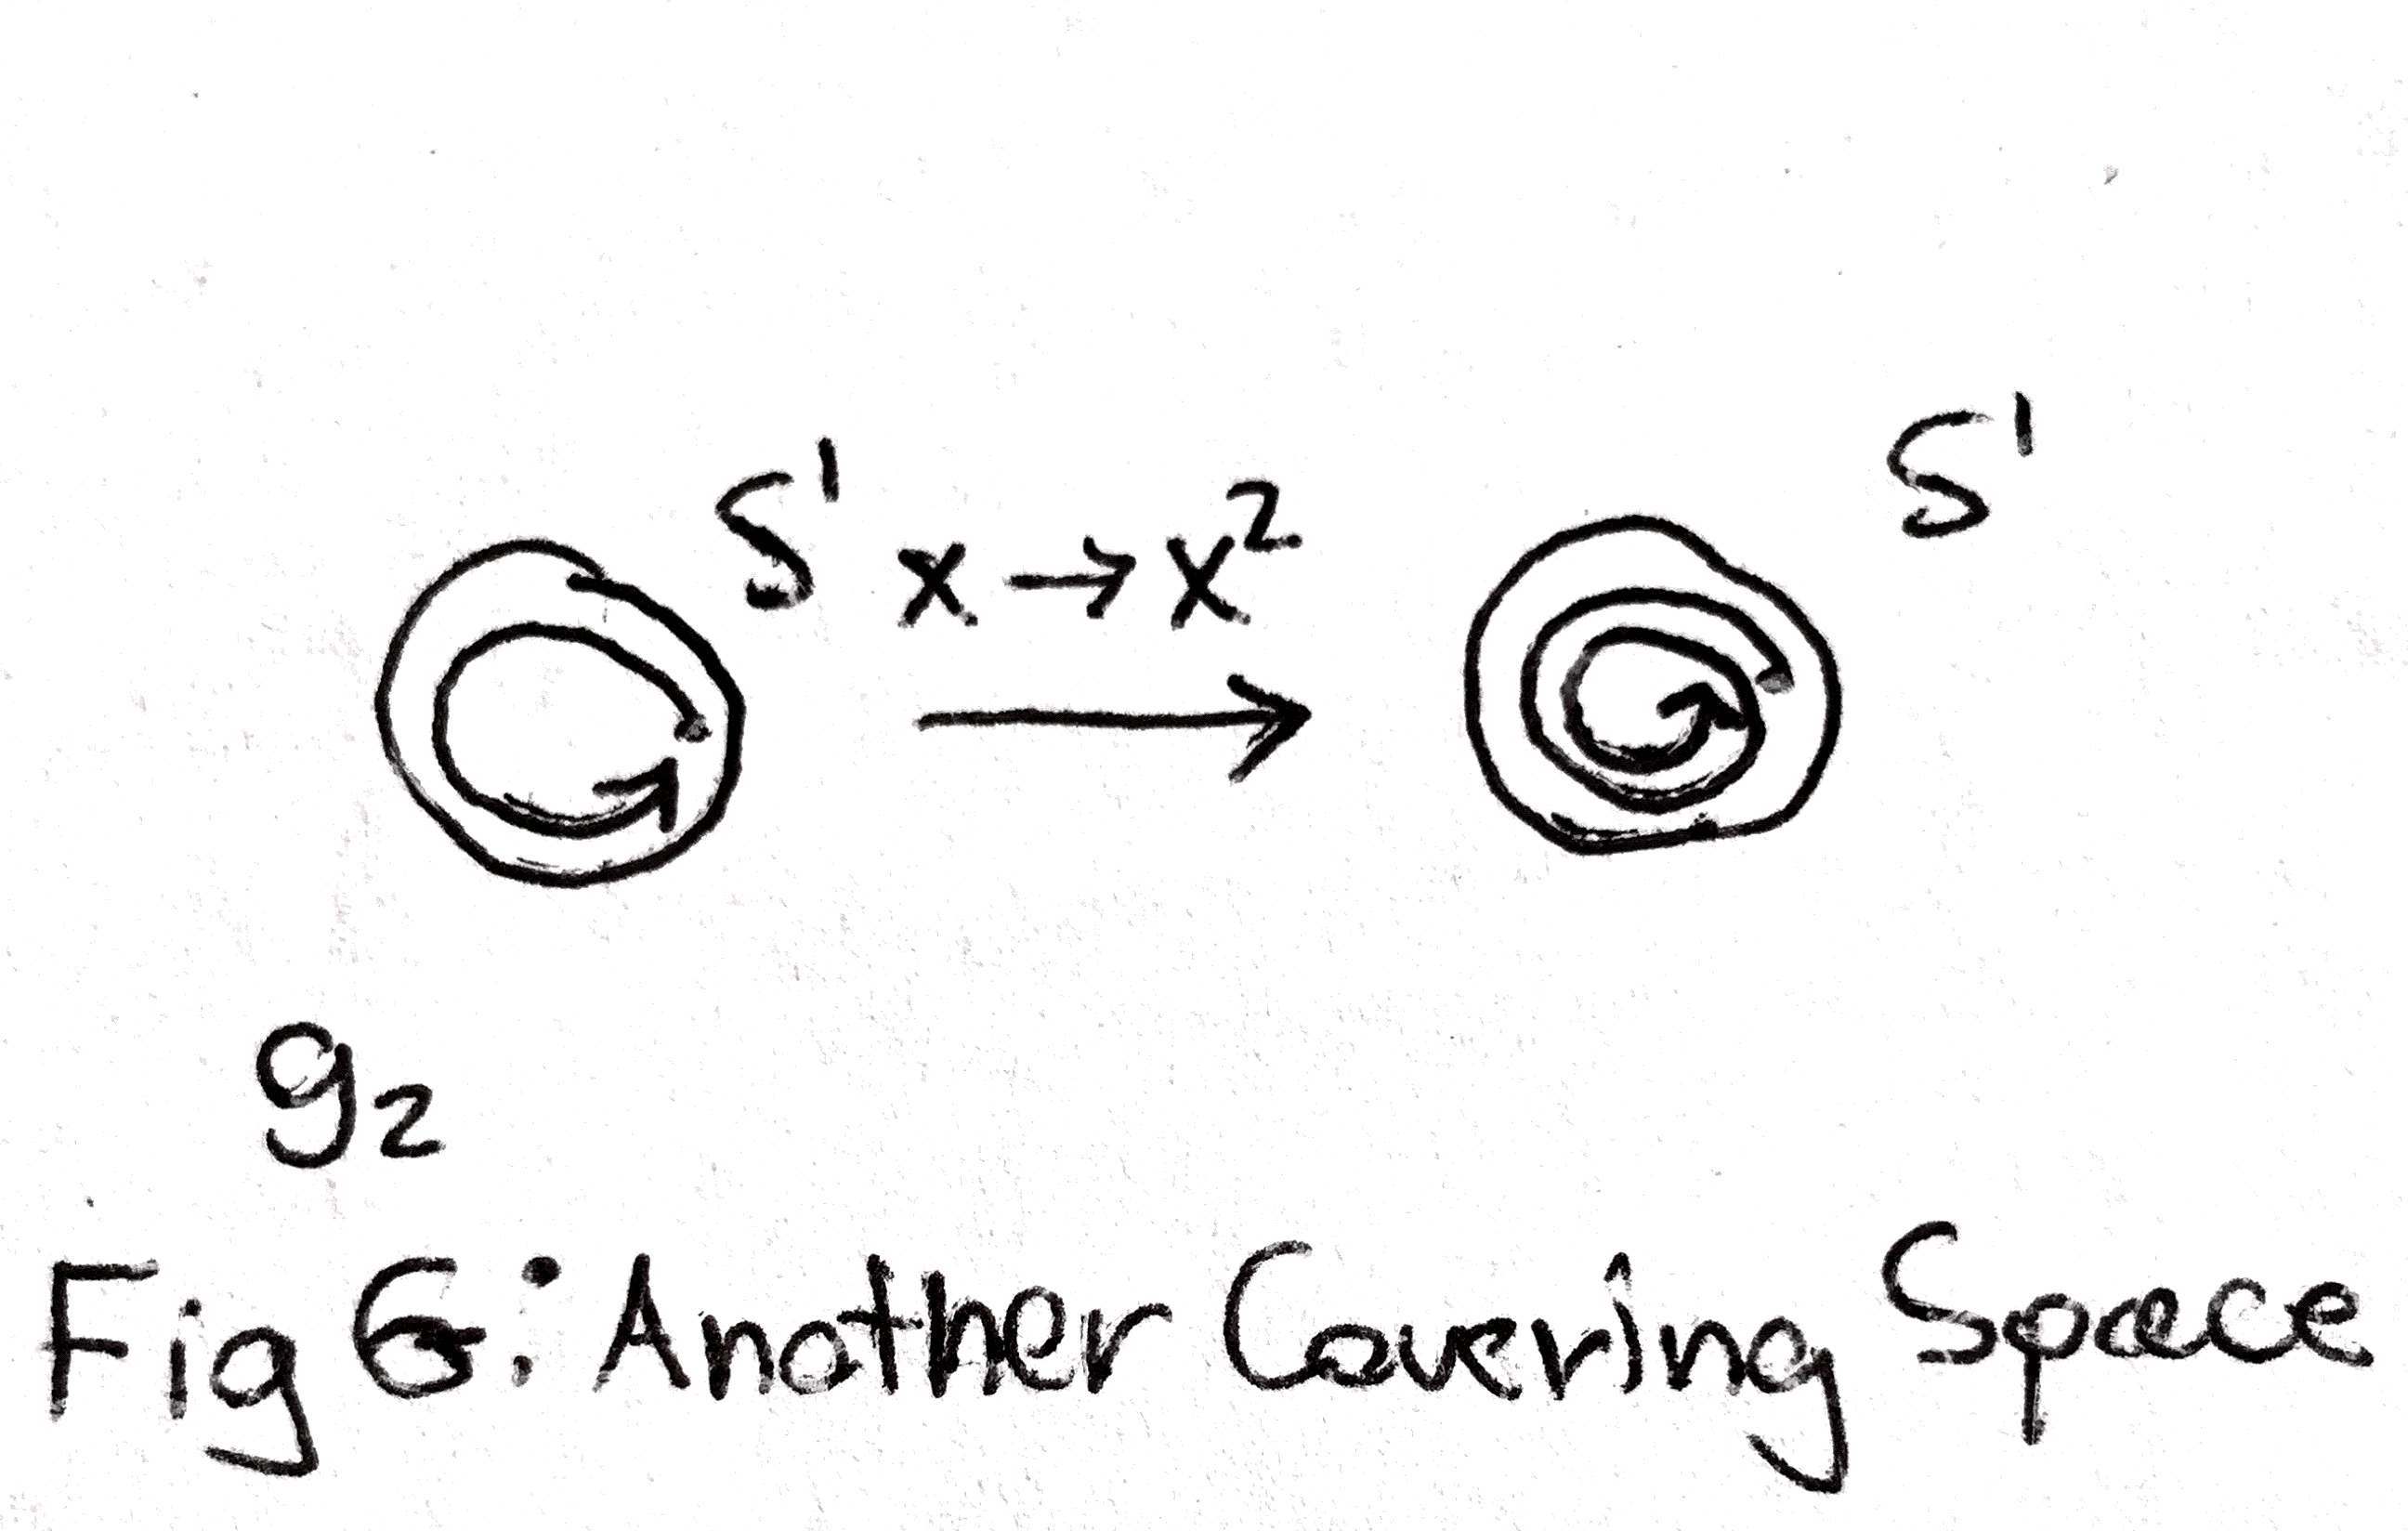 S¹ x → x² S¹
g₂
Fig 6: Another Covering Space